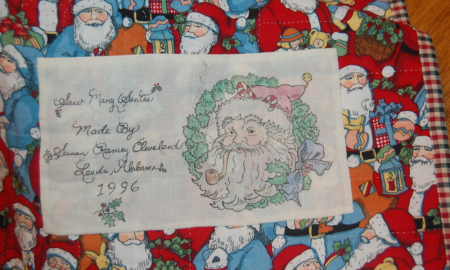 Sew Many Santas
Made By
Susann Ranny Cleveland
Leeds, Alabama
1996